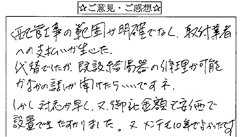 ☆ご意見・ご感想☆
配管工事の範囲が明確でなく、取付業者
への支払いが生じた。
代替でしたが、既設給湯器の修理が可能
かなかの話しが聞けたら いいですネ
しかし対応が早く、又御社金額で安価で
設置で生たすかりました。又メンテも早そうなので